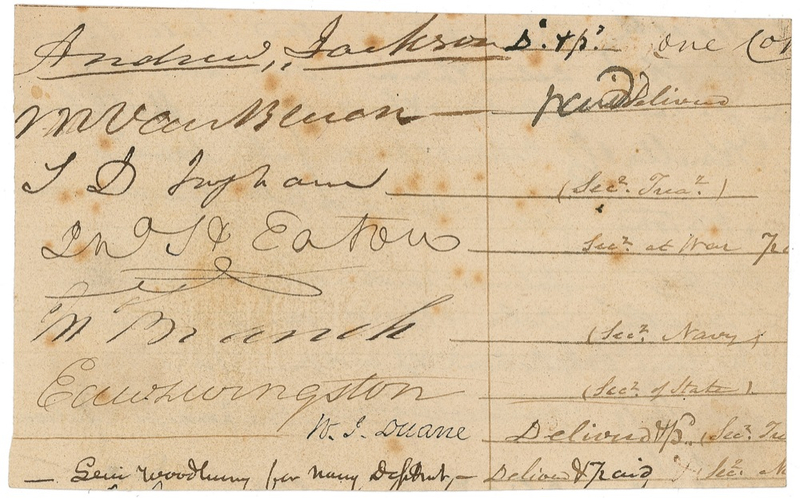 Andrew, Jackson D.d & p.d one Co
M Van Buren — paid Delivered
S D Ingham — (Sec.y Trea.y)
Jn.o H Eaton — Sec.y at War
Branch — (Sec.y Navy)
Edw Livingston (Sec.y of State).
W. J. Duane Delivered & p.d (Sec.y Tre
— Levi Woodbury for Navy Depmt, — Delivered & paid, Sec.y N